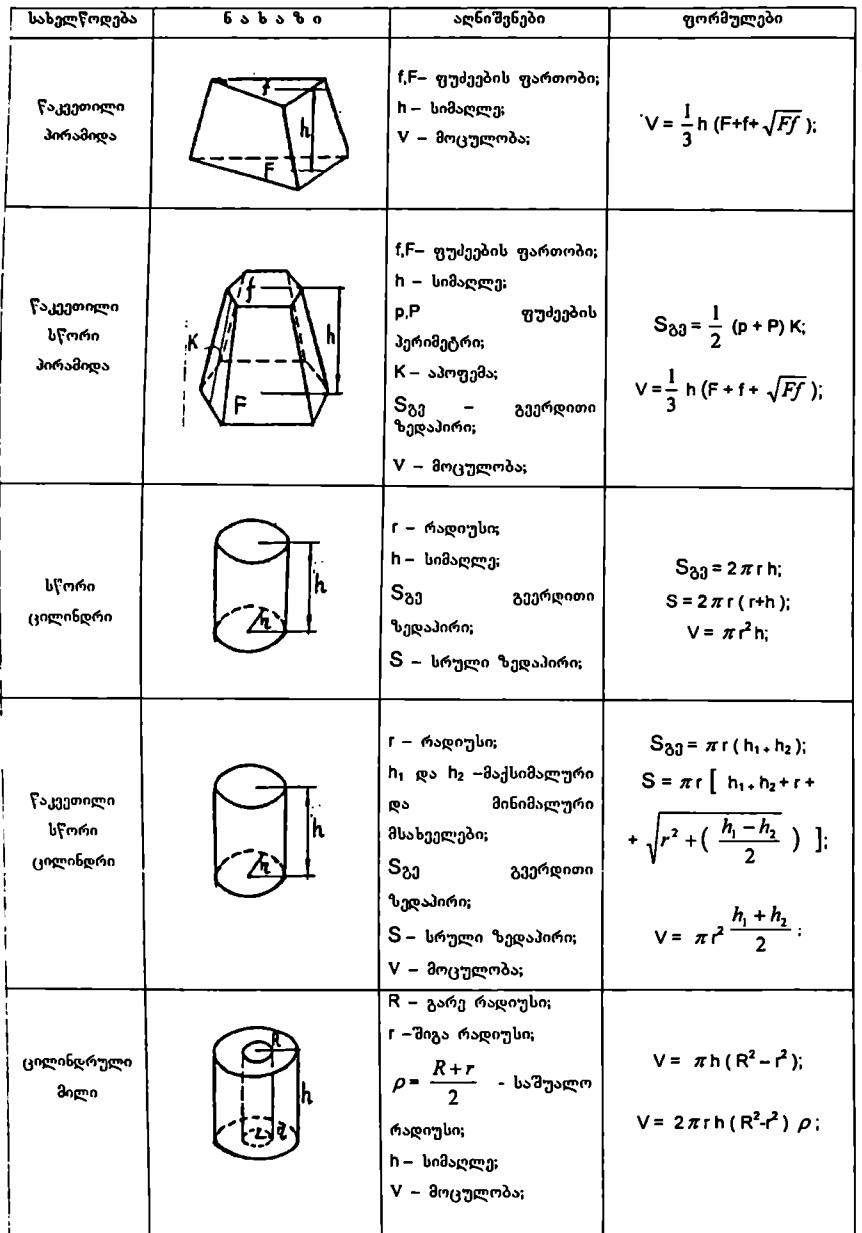 სახელწოდება ნახაზი აღნიშვნები ფორმულები
წაკვეთილი
პირამიდა
f
h
F
f,F– ფუძეების ფართობი;
h – სიმაღლე;
V – მოცულობა;
V = 1/3 h (F+f+ √Ff );
წაკვეთილი
სწორი
პირამიდა
f
K
h
F
f,F– ფუძეების ფართობი;
h – სიმაღლე;
p,P ფუძეების
პერიმეტრი;
K – აპოფემა;
Sგვ – გვერდითი
ზედაპირი;
V – მოცულობა;
Sგვ = 1/2 (p + P) K;
V = 1/3 h (F + f + √Ff );
სწორი
ცილინდრი
h
r
r – რადიუსი;
h – სიმაღლე;
Sგვ გვერდითი
ზედაპირი;
S – სრული ზედაპირი;
Sგვ = 2 π r h;
S = 2 π r ( r+h );
V = π r² h;
წაკვეთილი
სწორი
ცილინდრი
h
r
r – რადიუსი;
h₁ და h₂ –მაქსიმალური
და მინიმალური
მსახველები;
Sგვ გვერდითი
ზედაპირი;
S – სრული ზედაპირი;
V – მოცულობა;
Sგვ = π r ( h₁ + h₂ );
S = π r [ h₁ + h₂ + r +
+ √r² + ( (h₁ – h₂)/2 ) ];
V = π r² (h₁ + h₂)/2 ;
ცილინდრული
მილი
R
h
R – გარე რადიუსი;
r –შიგა რადიუსი;
ρ = (R + r)/2 - საშუალო
რადიუსი;
h – სიმაღლე;
V – მოცულობა;
V = π h ( R² – r² );
V = 2 π r h ( R²-r² ) ρ ;